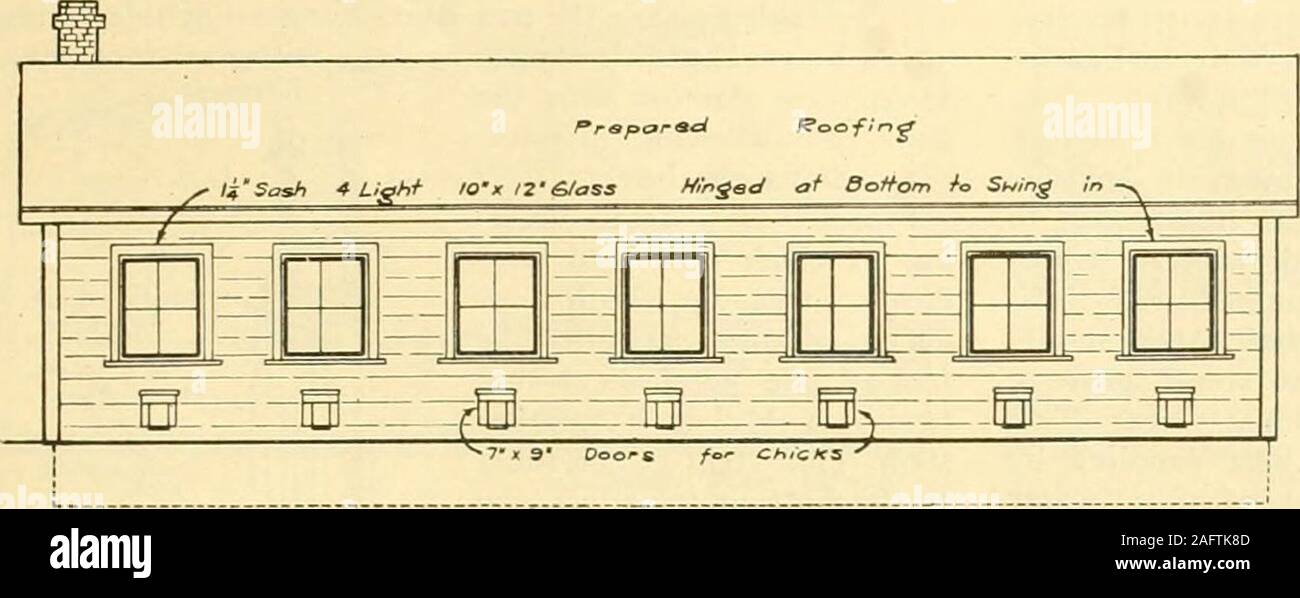 Prepared Roofing
1¼" Sash 4 Light 10" x 12" Glass Hinged at Bottom to Swing in
7" x 9" Doors for Chicks
alamy
Image ID: 2AFTK8D
www.alamy.com